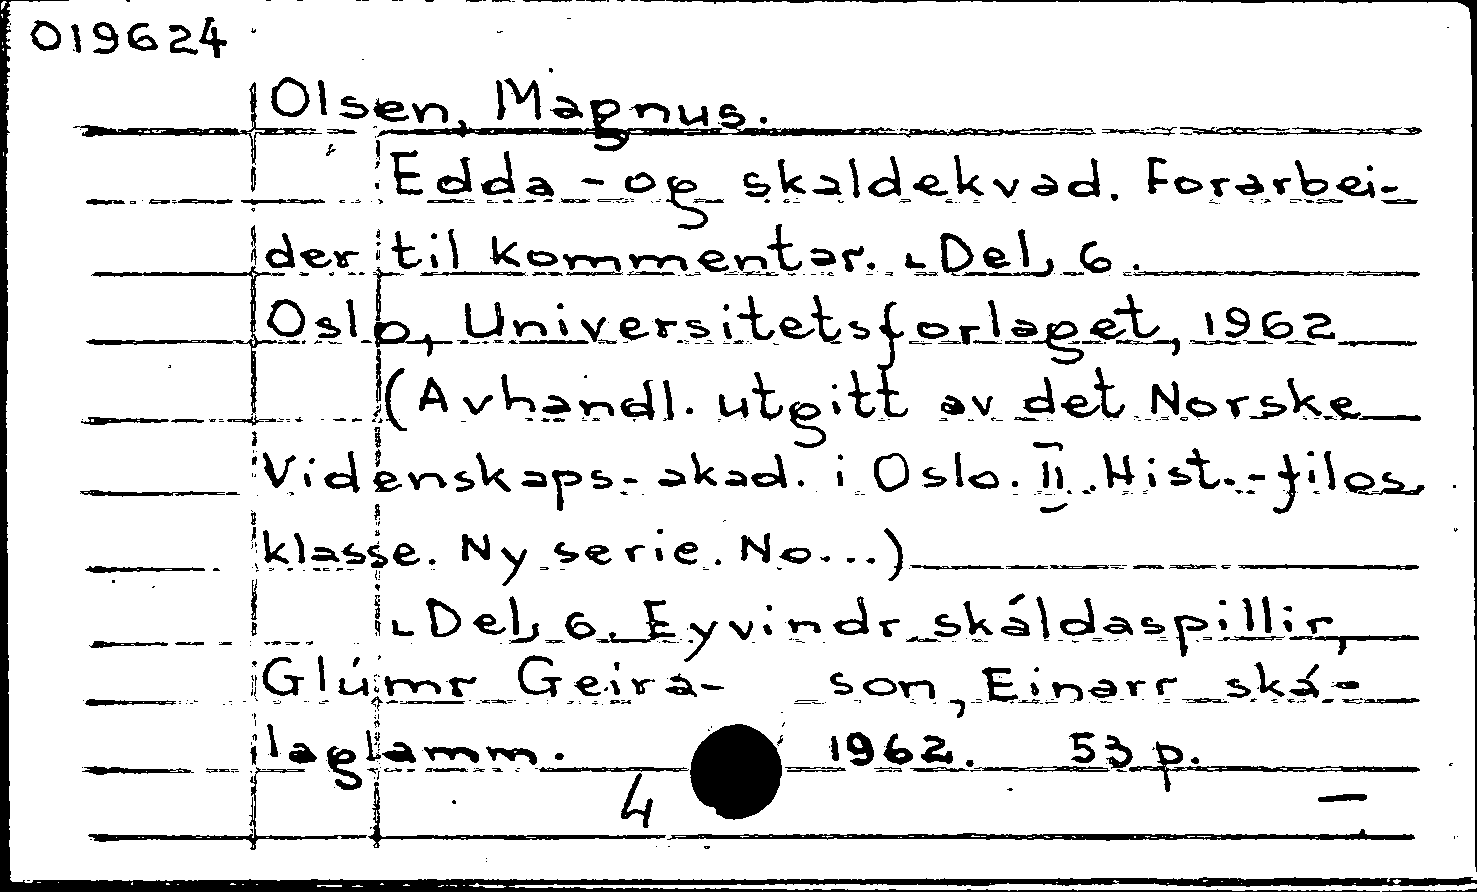 019624
Olsen, Magnus.
Edda-og skaldekvad. Forarbei-
der til kommentar. ⌞Del⌟ 6.
Oslo, Universitetsforlaget, 1962
(Avhandl. utgitt av det Norske
Videnskaps-akad. i Oslo. II. Hist.-filos.
klasse. Ny serie. No...)
⌞Del⌟ 6. Eyvindr skáldaspillir,
Glúmr Geira- son, Einarr ská-
laglamm. 1962. 53 p.
4 —